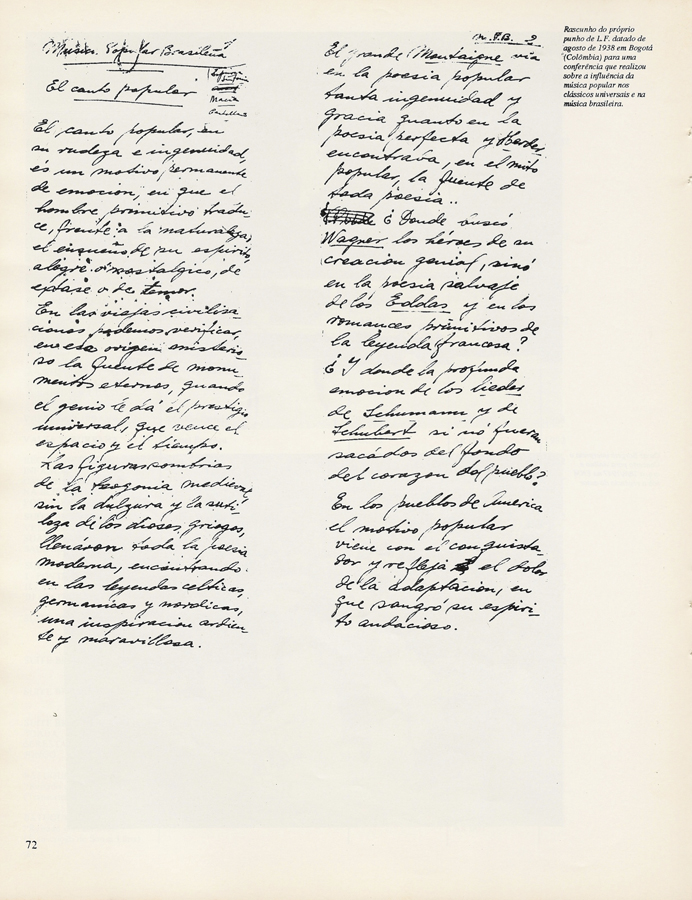 Musica Popular Brasileña
El canto popular
Maria
El canto popular, en
su rudeza e ingenuidad,
és un motivo permanente
de emocion, en que el
hombre primitivo tradu-
ce, frente a la naturaleza,
el ensueño de su espiritu,
alegre o nostalgico, de
extase o de temor.
En las viejas civilisa
ciones podemos verificar,
en esa origen misterio
so la fuente de monu-
mentos eternos, quando
el genio le dá el prestigio
universal, que vence el
espacio y el tiempo.
Las figuras sombrias
de la teogonia medieval
sin la dulzura y la suti-
leza de los dioses griegos,
llenáron toda la poesia
moderna, encontrando
en las leyendas celticas,
germanicas y nordicas,
una inspiracion ardien-
te y maravillosa.
M.P.B. 2
El grande Montaigne via
en la poesia popular
tanta ingenuidad y
gracia quanto en la
poesia perfecta y Herder
encontraba, en el mito
popular, la fuente de
toda poesia..
¿ Donde buscó
Wagner los héroes de su
creacion genial, sinó
en la poesia salvaje
de los Eddas y en los
romances primitivos de
la leyenda francesa?
¿ Y donde la profunda
emocion de los lieder
de Schumann y de
Schubert si nó fueran
sacádos del fondo
del corazon del pueblo?
En los pueblos de America
el motivo popular
viene con el conquista-
dor y refleja el dolor
de la adaptacion, en
que sangró su espiri-
to audacioso.
Rascunho do próprio
punho de L.F. datado de
agosto de 1938 em Bogotá
(Colômbia) para uma
conferência que realizou
sobre a influência da
música popular nos
clássicos universais e na
música brasileira.
72